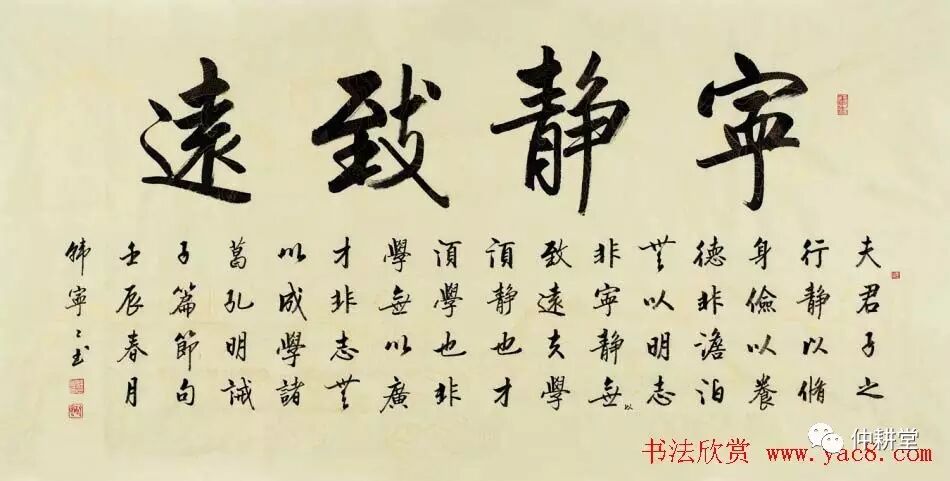 寧静致遠
夫君子之
行静以脩
身儉以養
德非澹泊
無以明志
非寧静無以
致遠夫學
須静也才
須學也非
學無以廣
才非志無
以成學諸
葛孔明誡
子篇節句
壬辰春月
韩寧〻书
仲耕堂
书法欣赏 www.yac8.com